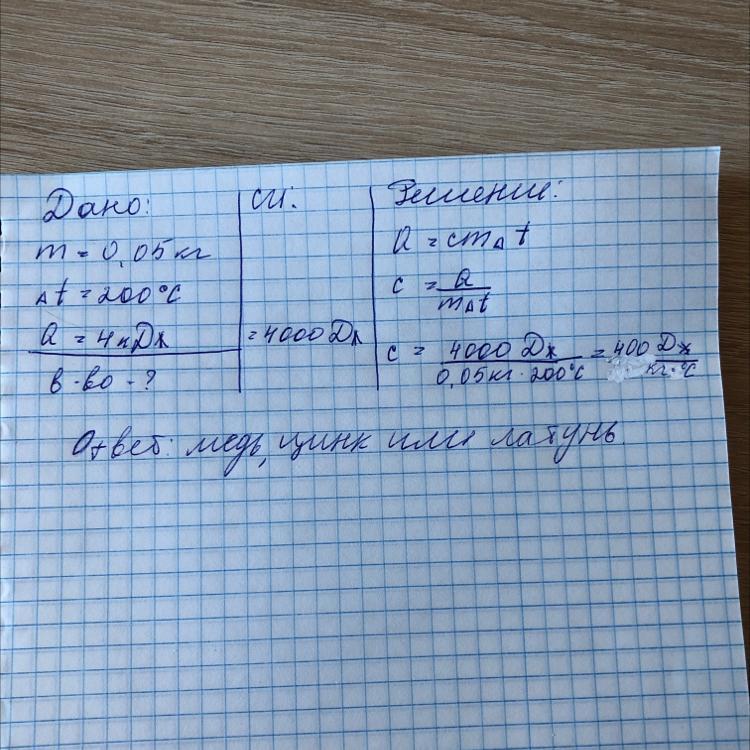 Дано:
m = 0,05 кг
Δt = 200°C
Q = 4 кДж
в-во - ?
СИ:
= 4000 Дж
Решение:
Q = cmΔt
c = Q / mΔt
c = 4000 Дж / 0,05 кг · 200°C = 400 Дж / кг·°C
Ответ: медь, цинк или латунь.